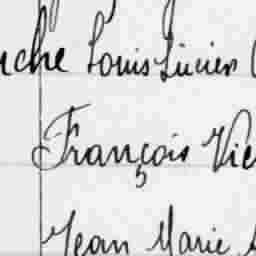 Louis Lucien
François
Jean Marie